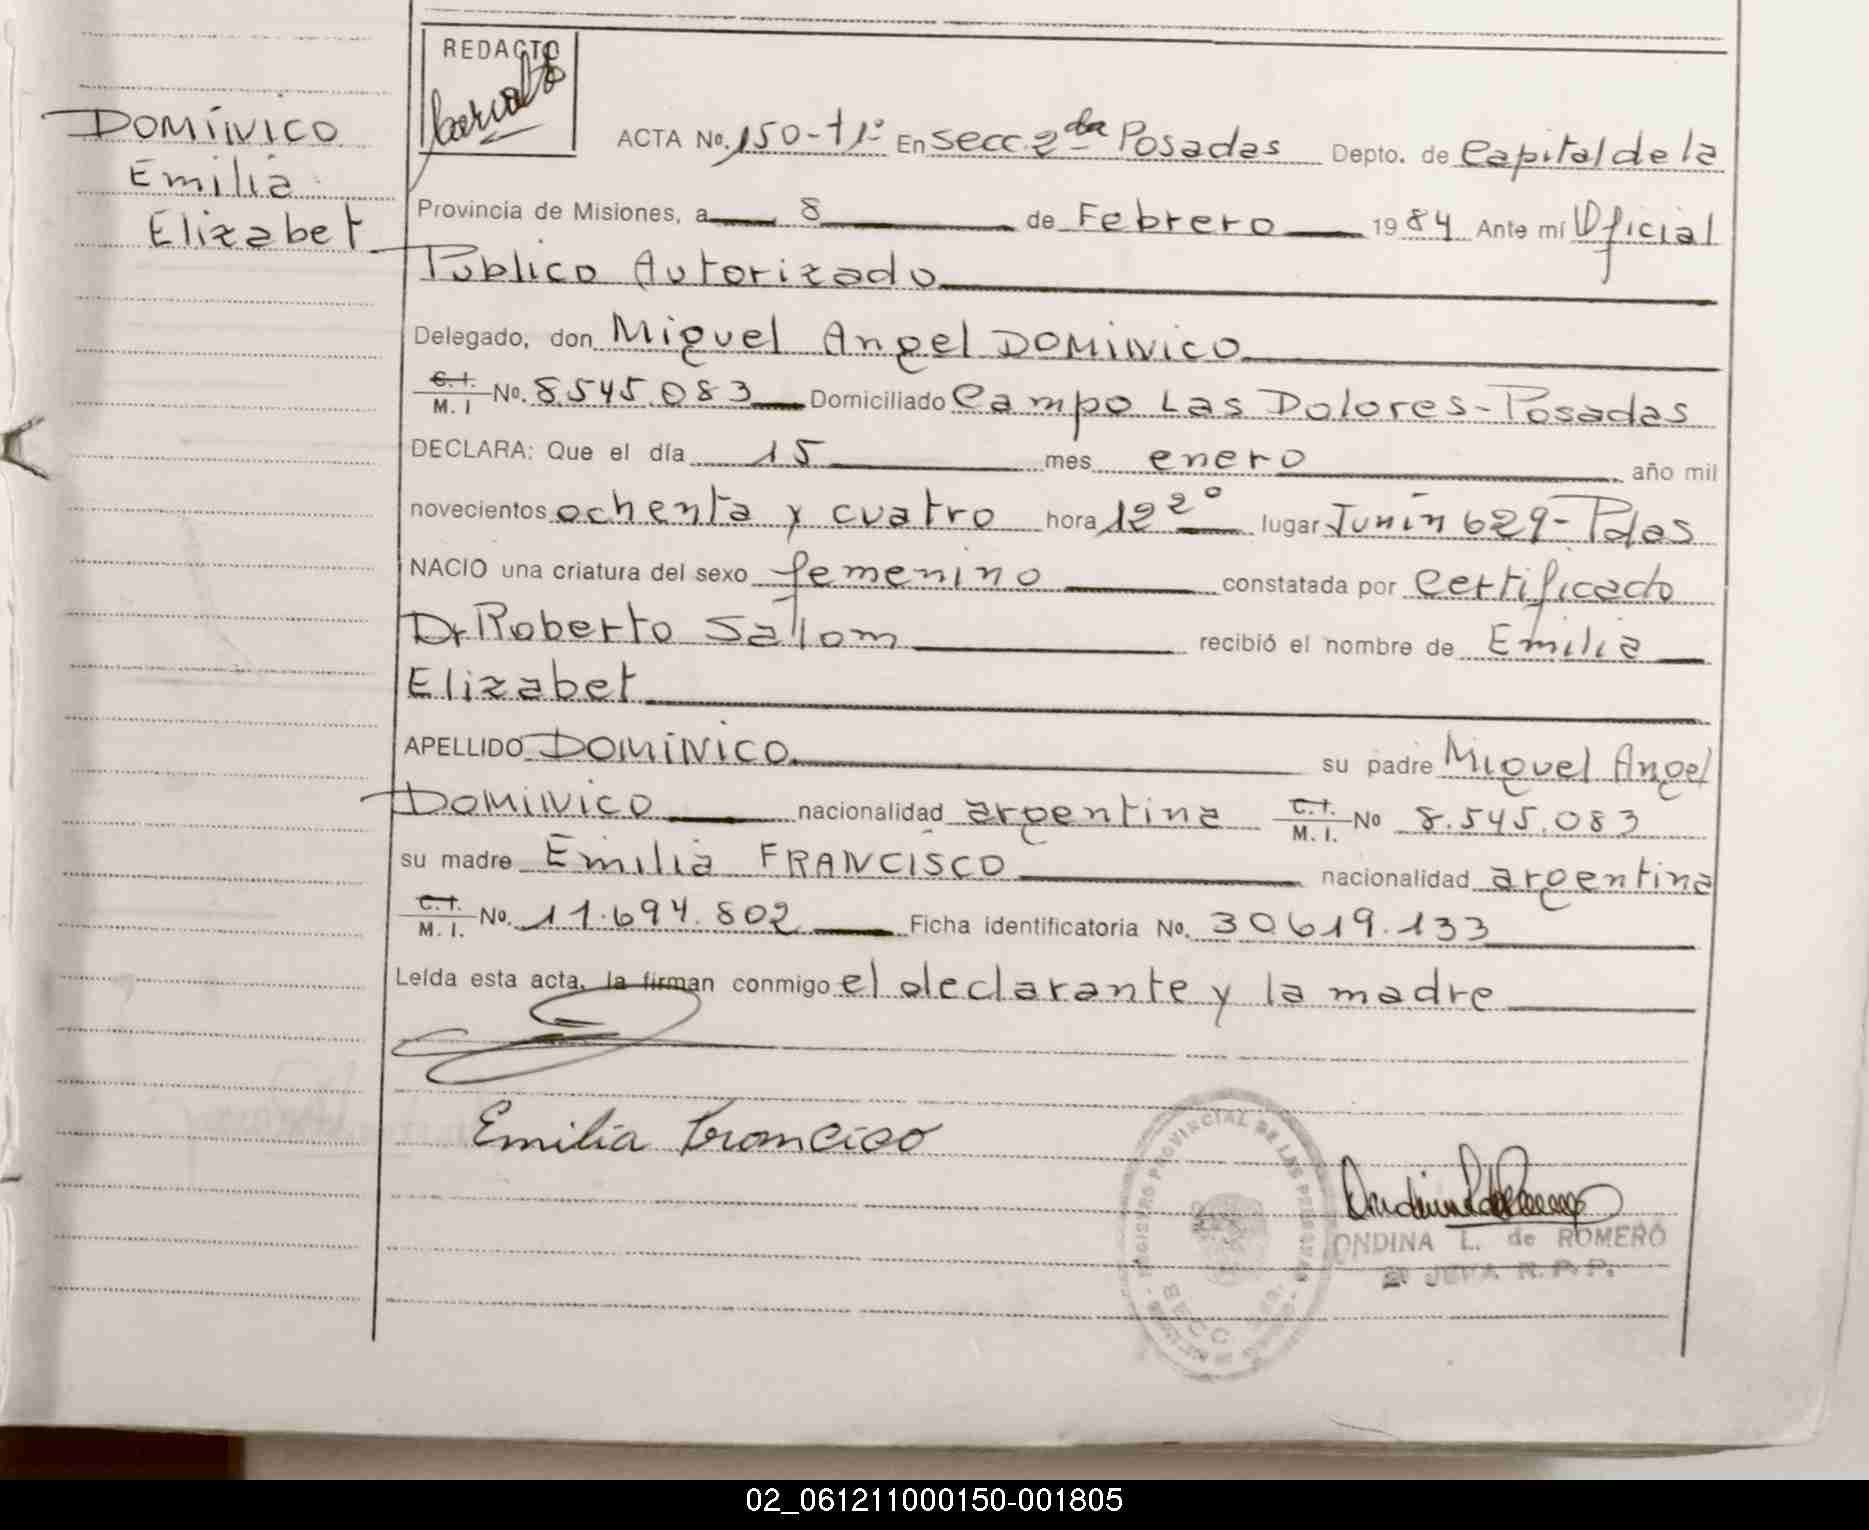 REDACTO
DOMINICO
Emilia
Elizabet
ACTA No. 150-T1º En Secc. 2da Posadas Depto. de Capital de la
Provincia de Misiones, a 8 de Febrero 1984 Ante mí Oficial
Publico Autorizado
Delegado, don Miguel Angel DOMINICO
C.I. M.I No. 8.545.083 Domiciliado Campo Las Dolores-Posadas
DECLARA: Que el día 15 mes enero año mil
novecientos ochenta y cuatro hora 12 20 lugar Junín 629-Pdas
NACIO una criatura del sexo femenino constatada por Certificado
Dr Roberto Sallom recibió el nombre de Emilia
Elizabet
APELLIDO DOMINICO su padre Miguel Angel
DOMINICO nacionalidad argentina C.I. M.I. No 8.545.083
su madre Emilia FRANCISCO nacionalidad argentina
C.I. M.I. No. 11.694.802 Ficha identificatoria No. 30619.133
Leída esta acta, la firman conmigo el declarante y la madre
Emilia Francisco
REGISTRO PROVINCIAL DE LAS PERSONAS
SECC.
ONDINA L. de ROMERO
2º JEFA R.P.P.
02_061211000150-001805